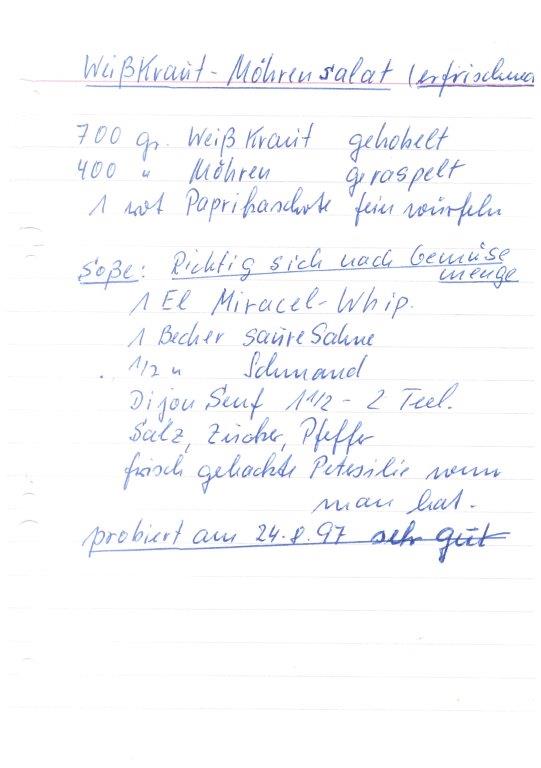 Weißkraut - Möhrensalat (erfrischend
700 gr. Weißkraut gehobelt
400 " Möhren geraspelt
1 rot Paprikaschote fein würfeln
Soße: Richtig sich nach Gemüse
menge
1 El Miracel-Whip.
1 Becher saure Sahne
1/2 " Schmand
Dijon Senf 1 1/2 - 2 Teel.
Salz, Zucker, Pfeffer
frisch gehackte Petersilie wenn
man hat.
probiert am 24.8.97 sehr gut